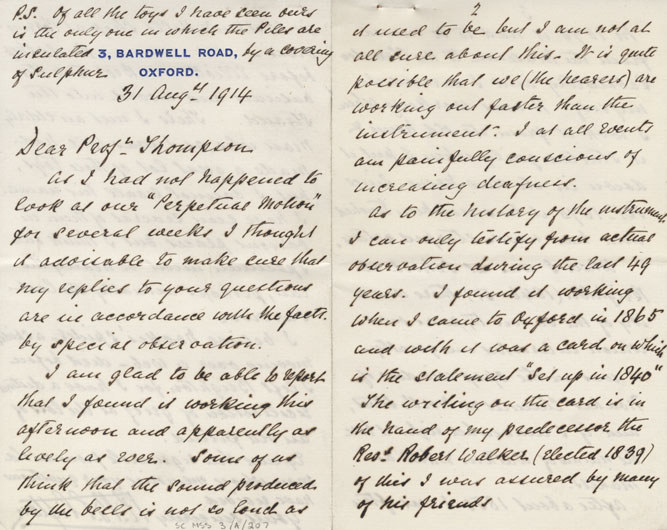 P.S. Of all the toys I have seen ours
is the only one in which the Piles are
insulated 3, BARDWELL ROAD, by a covering
of Sulphur OXFORD.
31 Augst 1914
Dear Profr Thompson
As I had not happened to
look at our "Perpetual Motion"
for several weeks I thought
it advisable to make sure that
my replies to your questions
are in accordance with the facts.
by special observation.
I am glad to be able to report
that I found it working this
afternoon and apparently as
lively as ever. Some of us
think that the sound produced
by the bells is not so loud as
SC MSS 3/A/207
2
it used to be but I am not at
all sure about this. It is quite
possible that we (the hearers) are
wearing out faster than the
instrument. I at all events
am painfully conscious of
increasing deafness.
As to the history of the instrument
I can only testify from actual
observation during the last 49
years. I found it working
when I came to Oxford in 1865
and with it was a card on which
is the statement "Set up in 1840"
The writing on the card is in
the hand of my predecessor the
Revd Robert Walker (elected 1839)
of this I was assured by many
of his friends